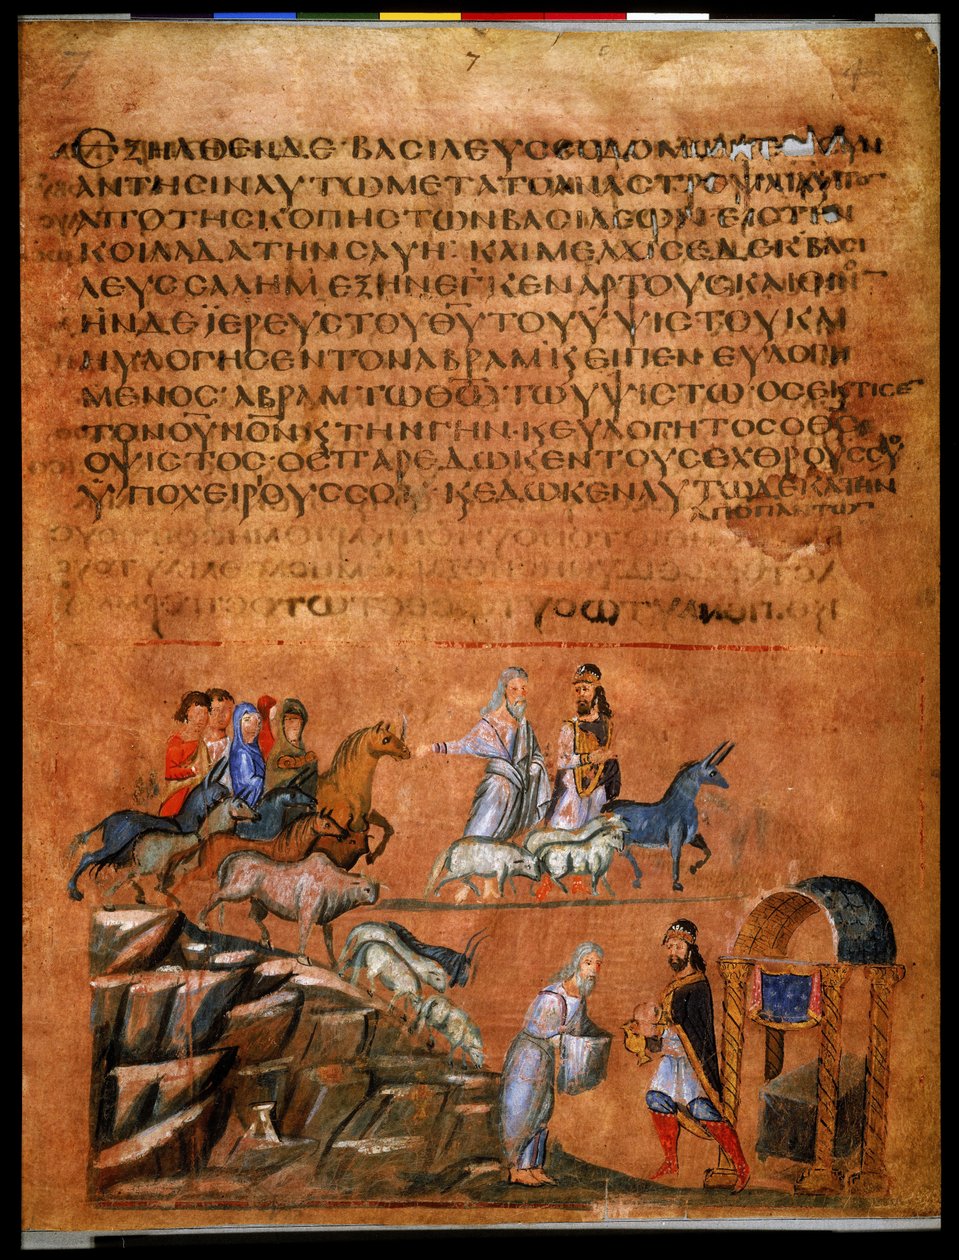 7
7 4
ΕΞΗΛΘΕΝΔΕ·ΒΑϹΙΛΕΥϹϹΟΔΟΜ
ΑΝΤΗϹΙΝΑΥΤΩΜΕΤΑΤΟΑΝΑϹΤΡΟΨΑΙΑΥΤΟ̅
ΑΠΟΤΗϹΚΟΠΗϹΤΩΝΒΑϹΙΛΕΩΝ·ΕΙϹΤΗΝ
ΚΟΙΛΑΔΑΤΗΝϹΑΥΗ·ΚΑΙΜΕΛΧΙϹΕΔΕΚΒΑϹΙ
ΛΕΥϹϹΑΛΗΜΕΞΗΝΕΓΚΕΝΑΡΤΟΥϹΚΑΙΟΙΝΟ̅
ΗΝΔΕΪΕΡΕΥϹΤΟΥΘ̅Υ̅ΤΟΥΫΨΙϹΤΟΥΚΑΙ
ΗΥΛΟΓΗϹΕΝΤΟΝΑΒΡΑΜ·ϗΕΙΠΕΝΕΥΛΟΓΗ
ΜΕΝΟϹ·ΑΒΡΑΜ·ΤΩΘ̅Ω̅·ΤΩΥΨΙϹΤΩ·ΟϹΕΚΤΙϹΕ̅
ΤΟΝΟΥ̅Ν̅Ο̅Ν̅ϗΤΗΝΓΗΝ·ϗΕΥΛΟΓΗΤΟϹΟΘ̅Ϲ̅
ΟΥΨΙϹΤΟϹ·ΟϹΠΑΡΕΔΩΚΕΝΤΟΥϹΕΧΘΡΟΥϹϹΟΥ
ΫΠΟΧΕΙΡΟΥϹϹΟΙ·ϗΕΔΩΚΕΝΑΥΤΩΔΕΚΑΤΗΝ
ΑΠΟΠΑΝΤΩ̅